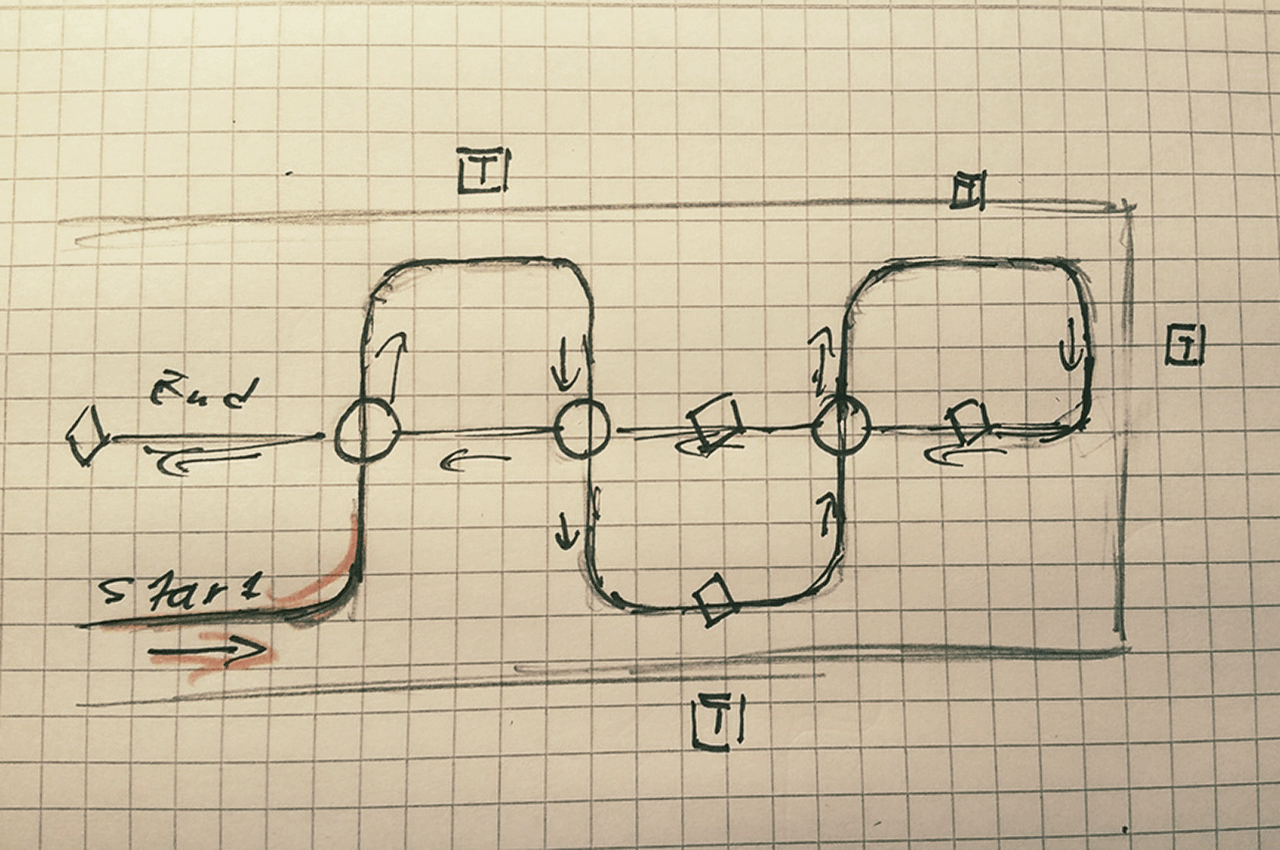 T
T
T
End
Start
T